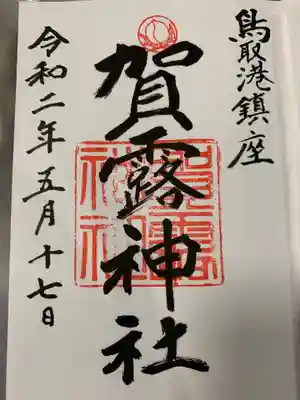 鳥取港鎮座
賀露神社
令和二年五月十七日
賀露
神社